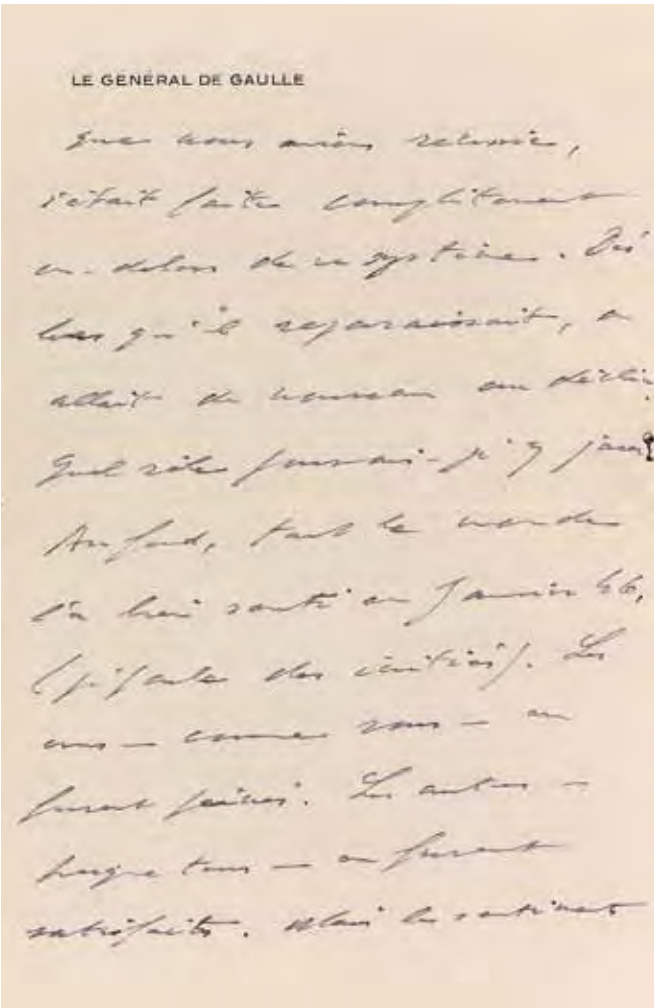 LE GÉNÉRAL DE GAULLE
que nous avions réussie,
s'était faite complètement
en-dehors de ce système. Dès
lors qu'il reparaissait, on
allait de nouveau au déclin.
Quel rôle pouvais-je y jouer
Au fond, tout le monde
l'a bien senti en Janvier 46,
(je parle des initiés). Les
uns – comme vous – en
furent peinés. Les autres –
presque tous – en furent
satisfaits. Mais les sentiments